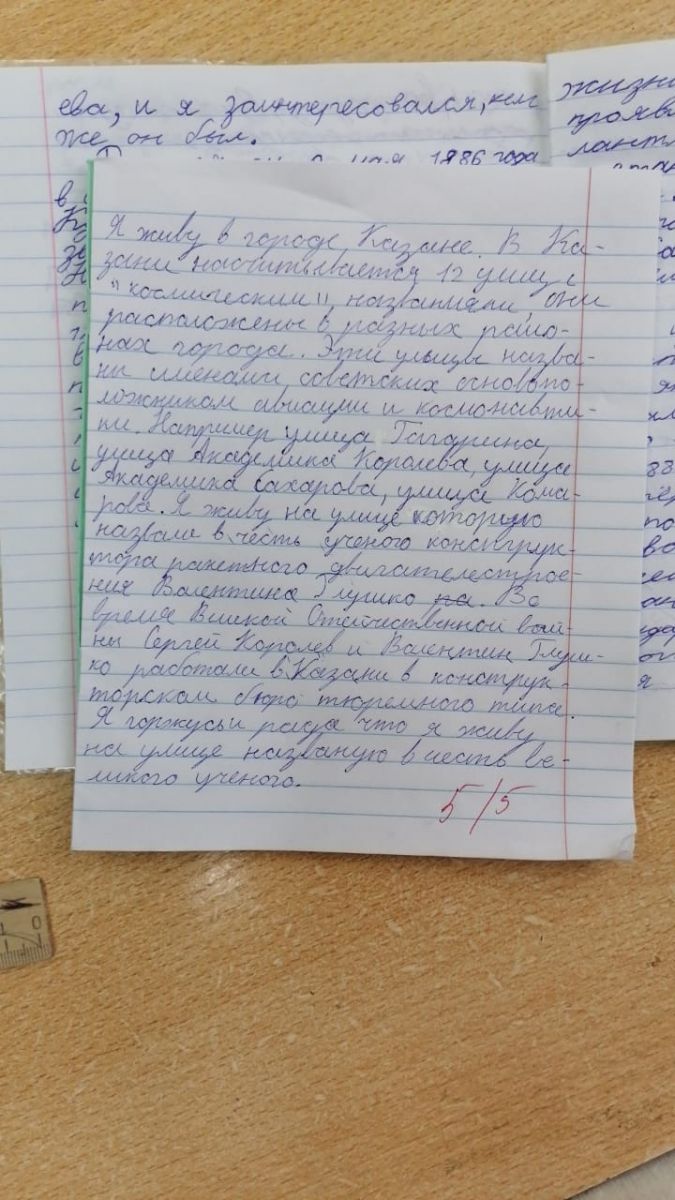 ева, и я заинтересовался, кем
же он был.
мая 1886 года
жизни
прояви
лантл
Я живу в городе Казане. В Ка-
зани насчитывается 12 улиц с
"космическим", названиями они
расположены в разных райо-
нах города. Эти улицы назва-
ны именами советских осново­по-
ложникам авиации и космонавти-
ки. Например улица Гагарина,
улица Академика Королева, улица
Академика Сахарова, улица Кома-
рова. Я живу на улице которую
назвали в честь ученого конструк-
тора ракетного двигателестрое-
ния Валентина Глушко на. Во
время Виикой Отечиственной вой-
ны Сергей Королев и Валентин Глуш-
ко работали в Казани в конструк-
торском бюро тюремного типа.
Я горжусь и рада что я живу
на улице названую в честь ве-
ликого ученого.
5/5